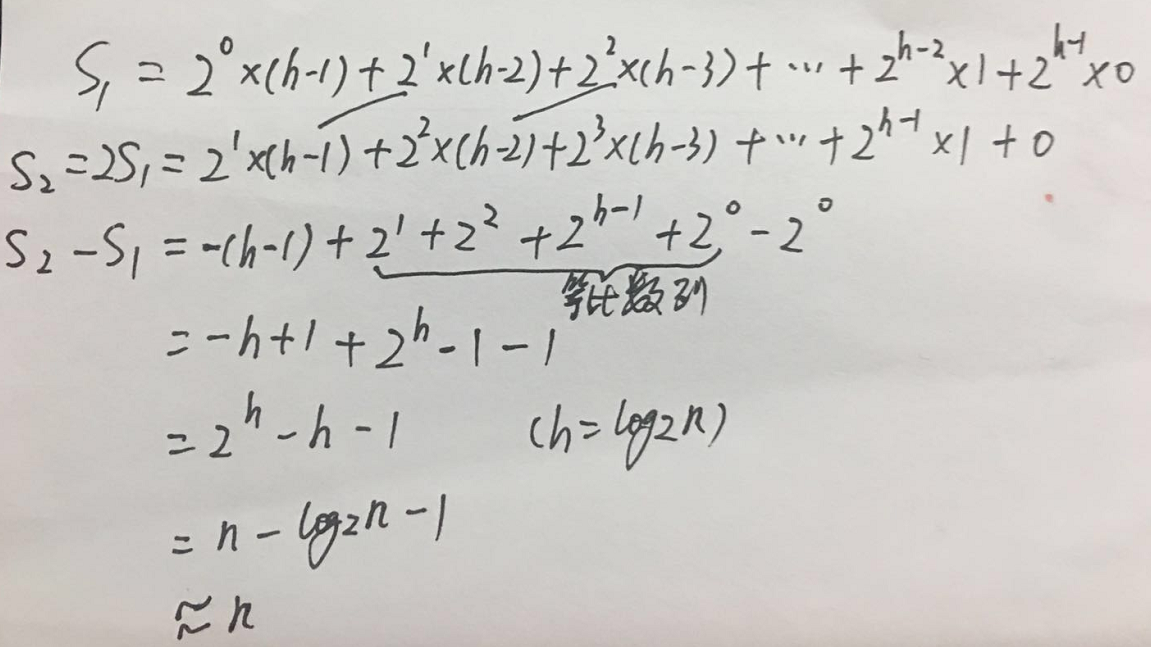 S₁ = 2⁰×(h-1)+2¹×(h-2)+2²×(h-3)+⋯+2ʰ⁻²×1+2ʰ⁻¹×0
S₂=2S₁=2¹×(h-1)+2²×(h-2)+2³×(h-3)+⋯+2ʰ⁻¹×1+0
S₂-S₁=-(h-1)+2¹+2²+2ʰ⁻¹+2⁰-2⁰
等比数列
=-h+1+2ʰ-1-1
=2ʰ-h-1 (h=log₂n)
=n-log₂n-1
≈n